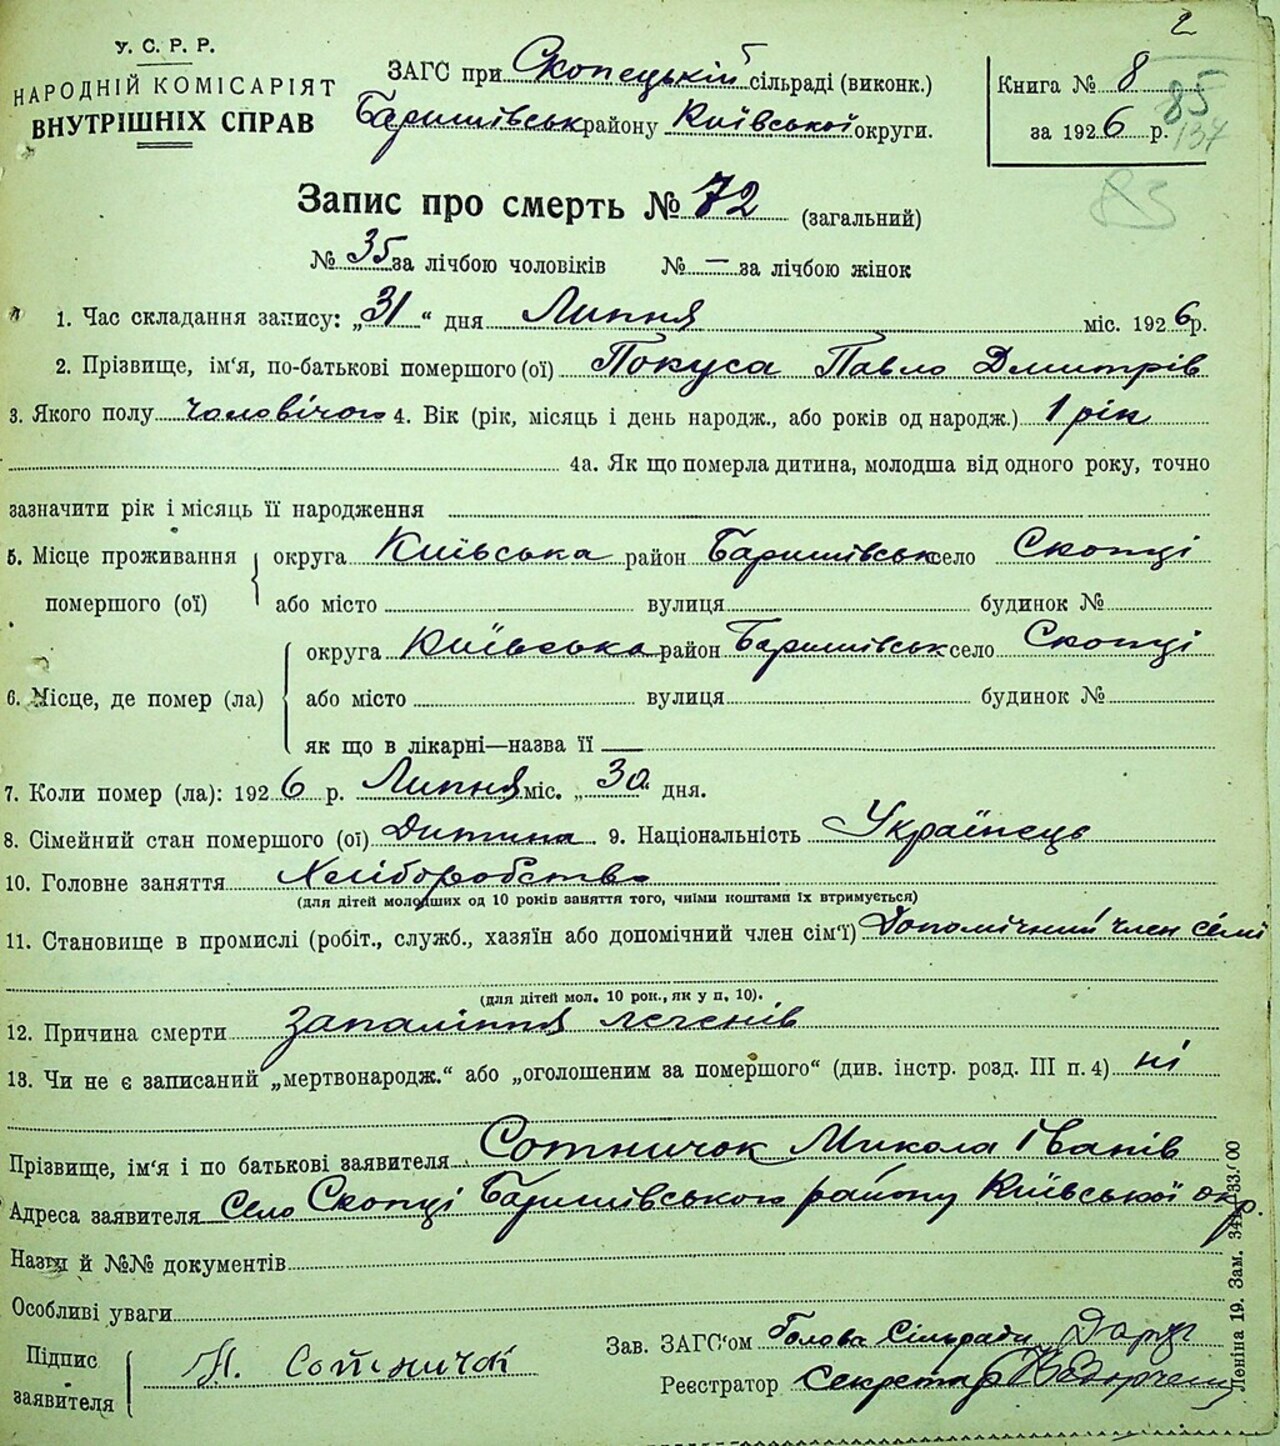 2
У. С. Р. Р.
НАРОДНІЙ КОМІСАРІЯТ
ВНУТРІШНІХ СПРАВ
ЗАГС при Скопецькій сільраді (виконк.)
Баришівськ району Київської округи.
Книга № 8
за 1926 р.
85
137
83
Запис про смерть № 72 (загальний)
№ 35 за лічбою чоловіків № — за лічбою жінок
1. Час складання запису: „31“ дня Липня міс. 1926 р.
2. Прізвище, ім‘я, по-батькові помершого (ої) Покуса Павло Дмитрів
3. Якого полу чоловічого 4. Вік (рік, місяць і день народж., або років од народж.) 1 рік
4а. Як що померла дитина, молодша від одного року, точно
зазначити рік і місяць її народження
5. Місце проживання помершого (ої) округа Київська район Баришівськ село Скопці
або місто вулиця будинок №
6. Місце, де помер (ла) округа Київська район Баришівськ село Скопці
або місто вулиця будинок №
як що в лікарні—назва її —
7. Коли помер (ла): 1926 р. Липня міс. „30“ дня.
8. Сімейний стан помершого (ої) Дитина 9. Національність Українець
10. Головне заняття Хліборобство
(для дітей молодших од 10 років заняття того, чиїми коштами їх втримується)
11. Становище в промислі (робіт., служб., хазяїн або допомічний член сім‘ї) Допомічний член семі
(для дітей мол. 10 рок., як у п. 10).
12. Причина смерти Запаління легенів
13. Чи не є записаний „мертвонародж.“ або „оголошеним за помершого“ (див. інстр. розд. III п. 4) ні
Прізвище, ім‘я і по батькові заявителя Сотничок Микола Іванів
Адреса заявителя Село Скопці Баришівського району Київської окр.
Назви й №№ документів
Особливі уваги
Підпис заявителя М. Сотничок
Зав. ЗАГС‘ом Голова Сільради
Реєстратор Секретар
Леніна 19. Зам.